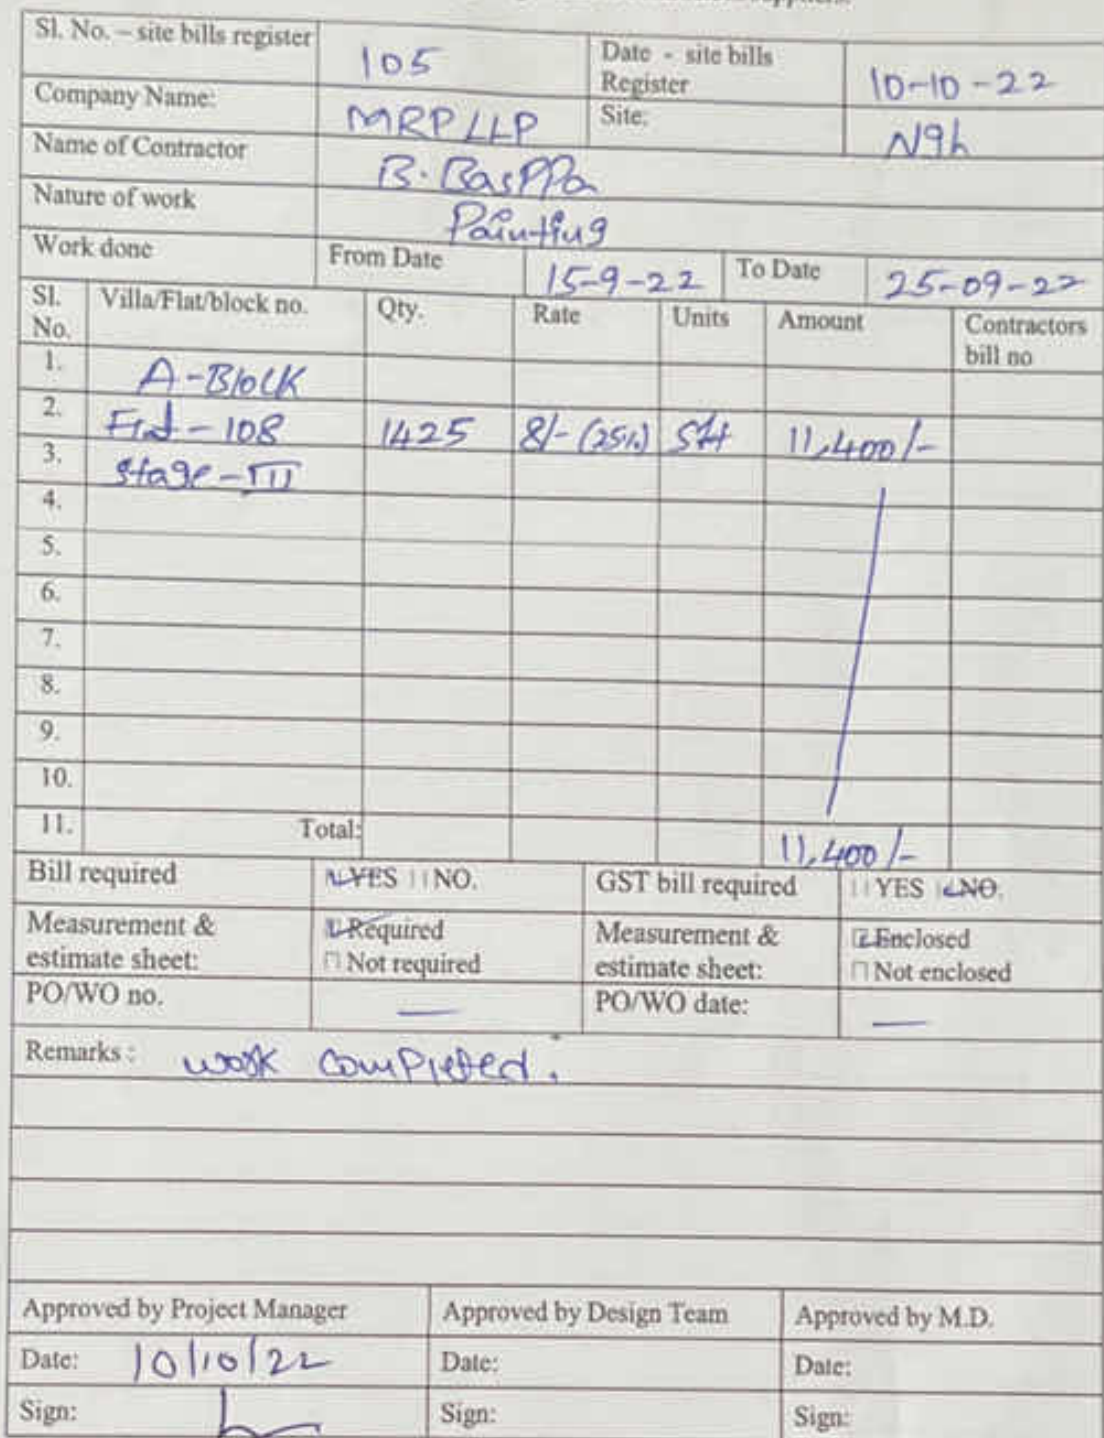 Sl. No. – site bills register 105 Date - site bills Register 10-10-22
Company Name: MRP LLP Site: Ngh
Name of Contractor B. BasPPa
Nature of work Painting
Work done From Date 15-9-22 To Date 25-09-22
Sl. No. Villa/Flat/block no. Qty. Rate Units Amount Contractors bill no
1. A-Block
2. Flat-108 1425 8/- (25%) Sft 11,400/-
3. Stage-III
4.
5.
6.
7.
8.
9.
10.
11. Total: 11,400/-
Bill required YES NO. GST bill required YES NO.
Measurement & estimate sheet: Required Not required Measurement & estimate sheet: Enclosed Not enclosed
PO/WO no. — PO/WO date: —
Remarks: work completed.
Approved by Project Manager Approved by Design Team Approved by M.D.
Date: 10/10/22 Date: Date:
Sign: Sign: Sign: